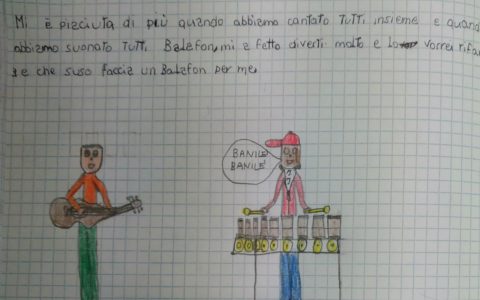 Mi è piaciuta di più quando abbiamo cantato Tutti insieme e quand
abbiamo suonato Tutti. Balafon, mi a fatto diverti molto e vorrei rifa
e che suso faccia un Balafon per me.
BANILÈ
BANILÈ